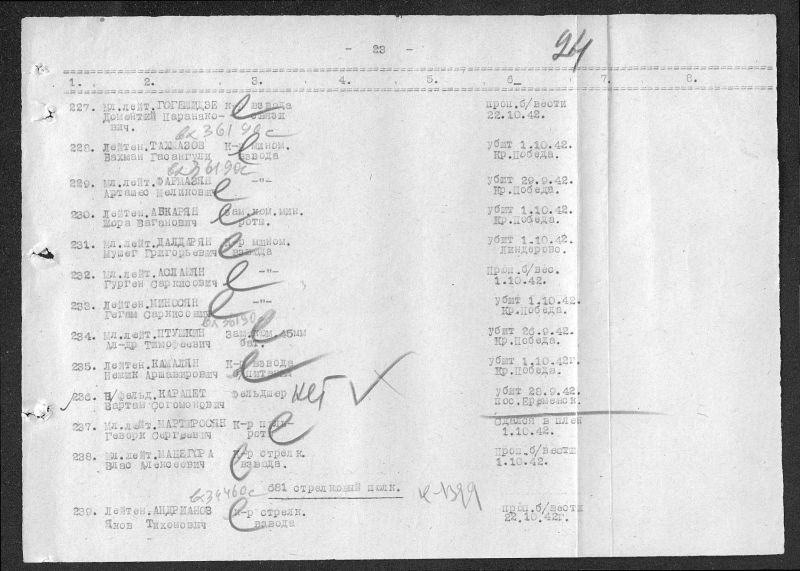 - 23 -
94
1. 2. 3. 4. 5. 6_ 7. 8.
227. Мл.лейт. ГОГЕШИДЗЕ к-р взвода проп.б/вести
Доментий Паранако- связи 22.10.42.
вич.
вх36190с
228. Лейтен. ТАХМАЗОВ К-р мином. убит 1.10.42.
Вахман Гасангули взвода Кр.Победа.
вх36190с
229. Мл.лейт. ФАРМАЗЯН -"- убит 29.9.42.
Арташес Меликович Кр.Победа.
230. Лейтен. АБКАРЯН Зам.ком.мин. убит 1.10.42.
Шора Ваганович роты. Кр.Победа.
231. Мл.лейт. ДАЛДАРЯН к-р мином. убит 1.10.42.
Мушег Григорьевич взвода Линдерово.
232. Мл.лейт. АСЛАНЯН -"- Проп.б/вес.
Гурген Саркисович 1.10.42.
233. Лейтен. МИНОСЯН -"- убит 1.10.42.
Гегам Саркисович Кр.Победа.
234. Мл.лейт. ПТУШКИН Зам.ком.45мм убит 26.9.42.
Ал-др Тимофеевич бат. Кр.Победа.
235. Лейтен. КАМАЛЯН К-р взвода убит 1.10.42г.
Аршавирович питания Кр.Победа.
236. В/фельд. КАРАПЕТ фельдшер нет убит 28.9.42.
Вартан Согомонович пос.Еременск.
237. Мл.лейт. МАРТИРОСЯН К-р пуль- Сдался в плен
Геворк Сергеевич роты 1.10.42.
238. Мл.лейт. МАЦЕГОРА К-р стрелк. проп.б/вести
Влас Алексеевич взвода. 1.10.42.
вх34460с 681 стрелковый полк. к-1399
239. Лейтен. АНДРИАНОВ К-р стрелк. проп.б/вести
Яков Тихонович взвода 22.10.42г.